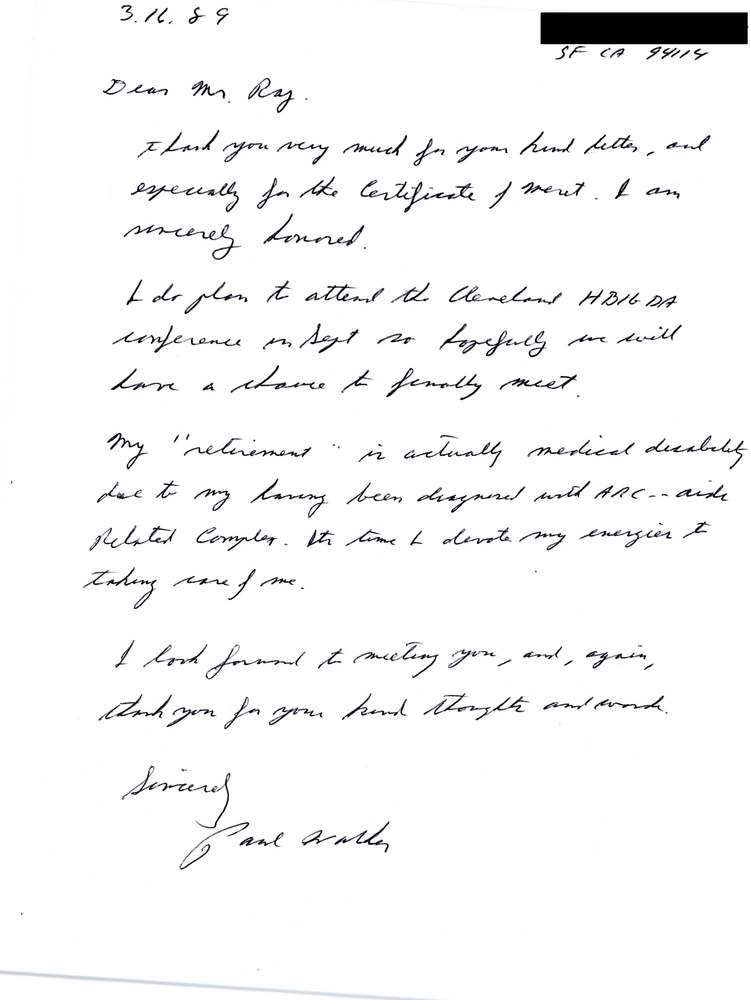 3.16.89
SF CA 94114
Dear Mr. Ray.
Thank you very much for your kind letter, and
especially for the Certificate of Merit. I am
sincerely honored.
I do plan to attend the Cleveland HBIGDA
conference in Sept so hopefully we will
have a chance to finally meet.
My "retirement" is actually medical disability
due to my having been diagnosed with ARC -- aids
Related Complex. Its time I devote my energies to
taking care of me.
I look forward to meeting you, and, again,
thank you for your kind thoughts and words.
Sincerely
Paul Walker